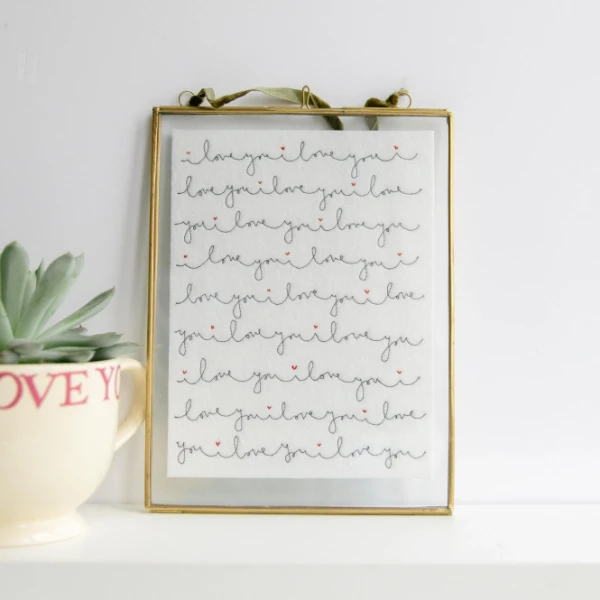 i love you i love you i
love you i love you i love
you i love you i love you
i love you i love you i
love you i love you i love
you i love you i love you
i love you i love you i
love you i love you i love
you i love you i love you
OVE YO